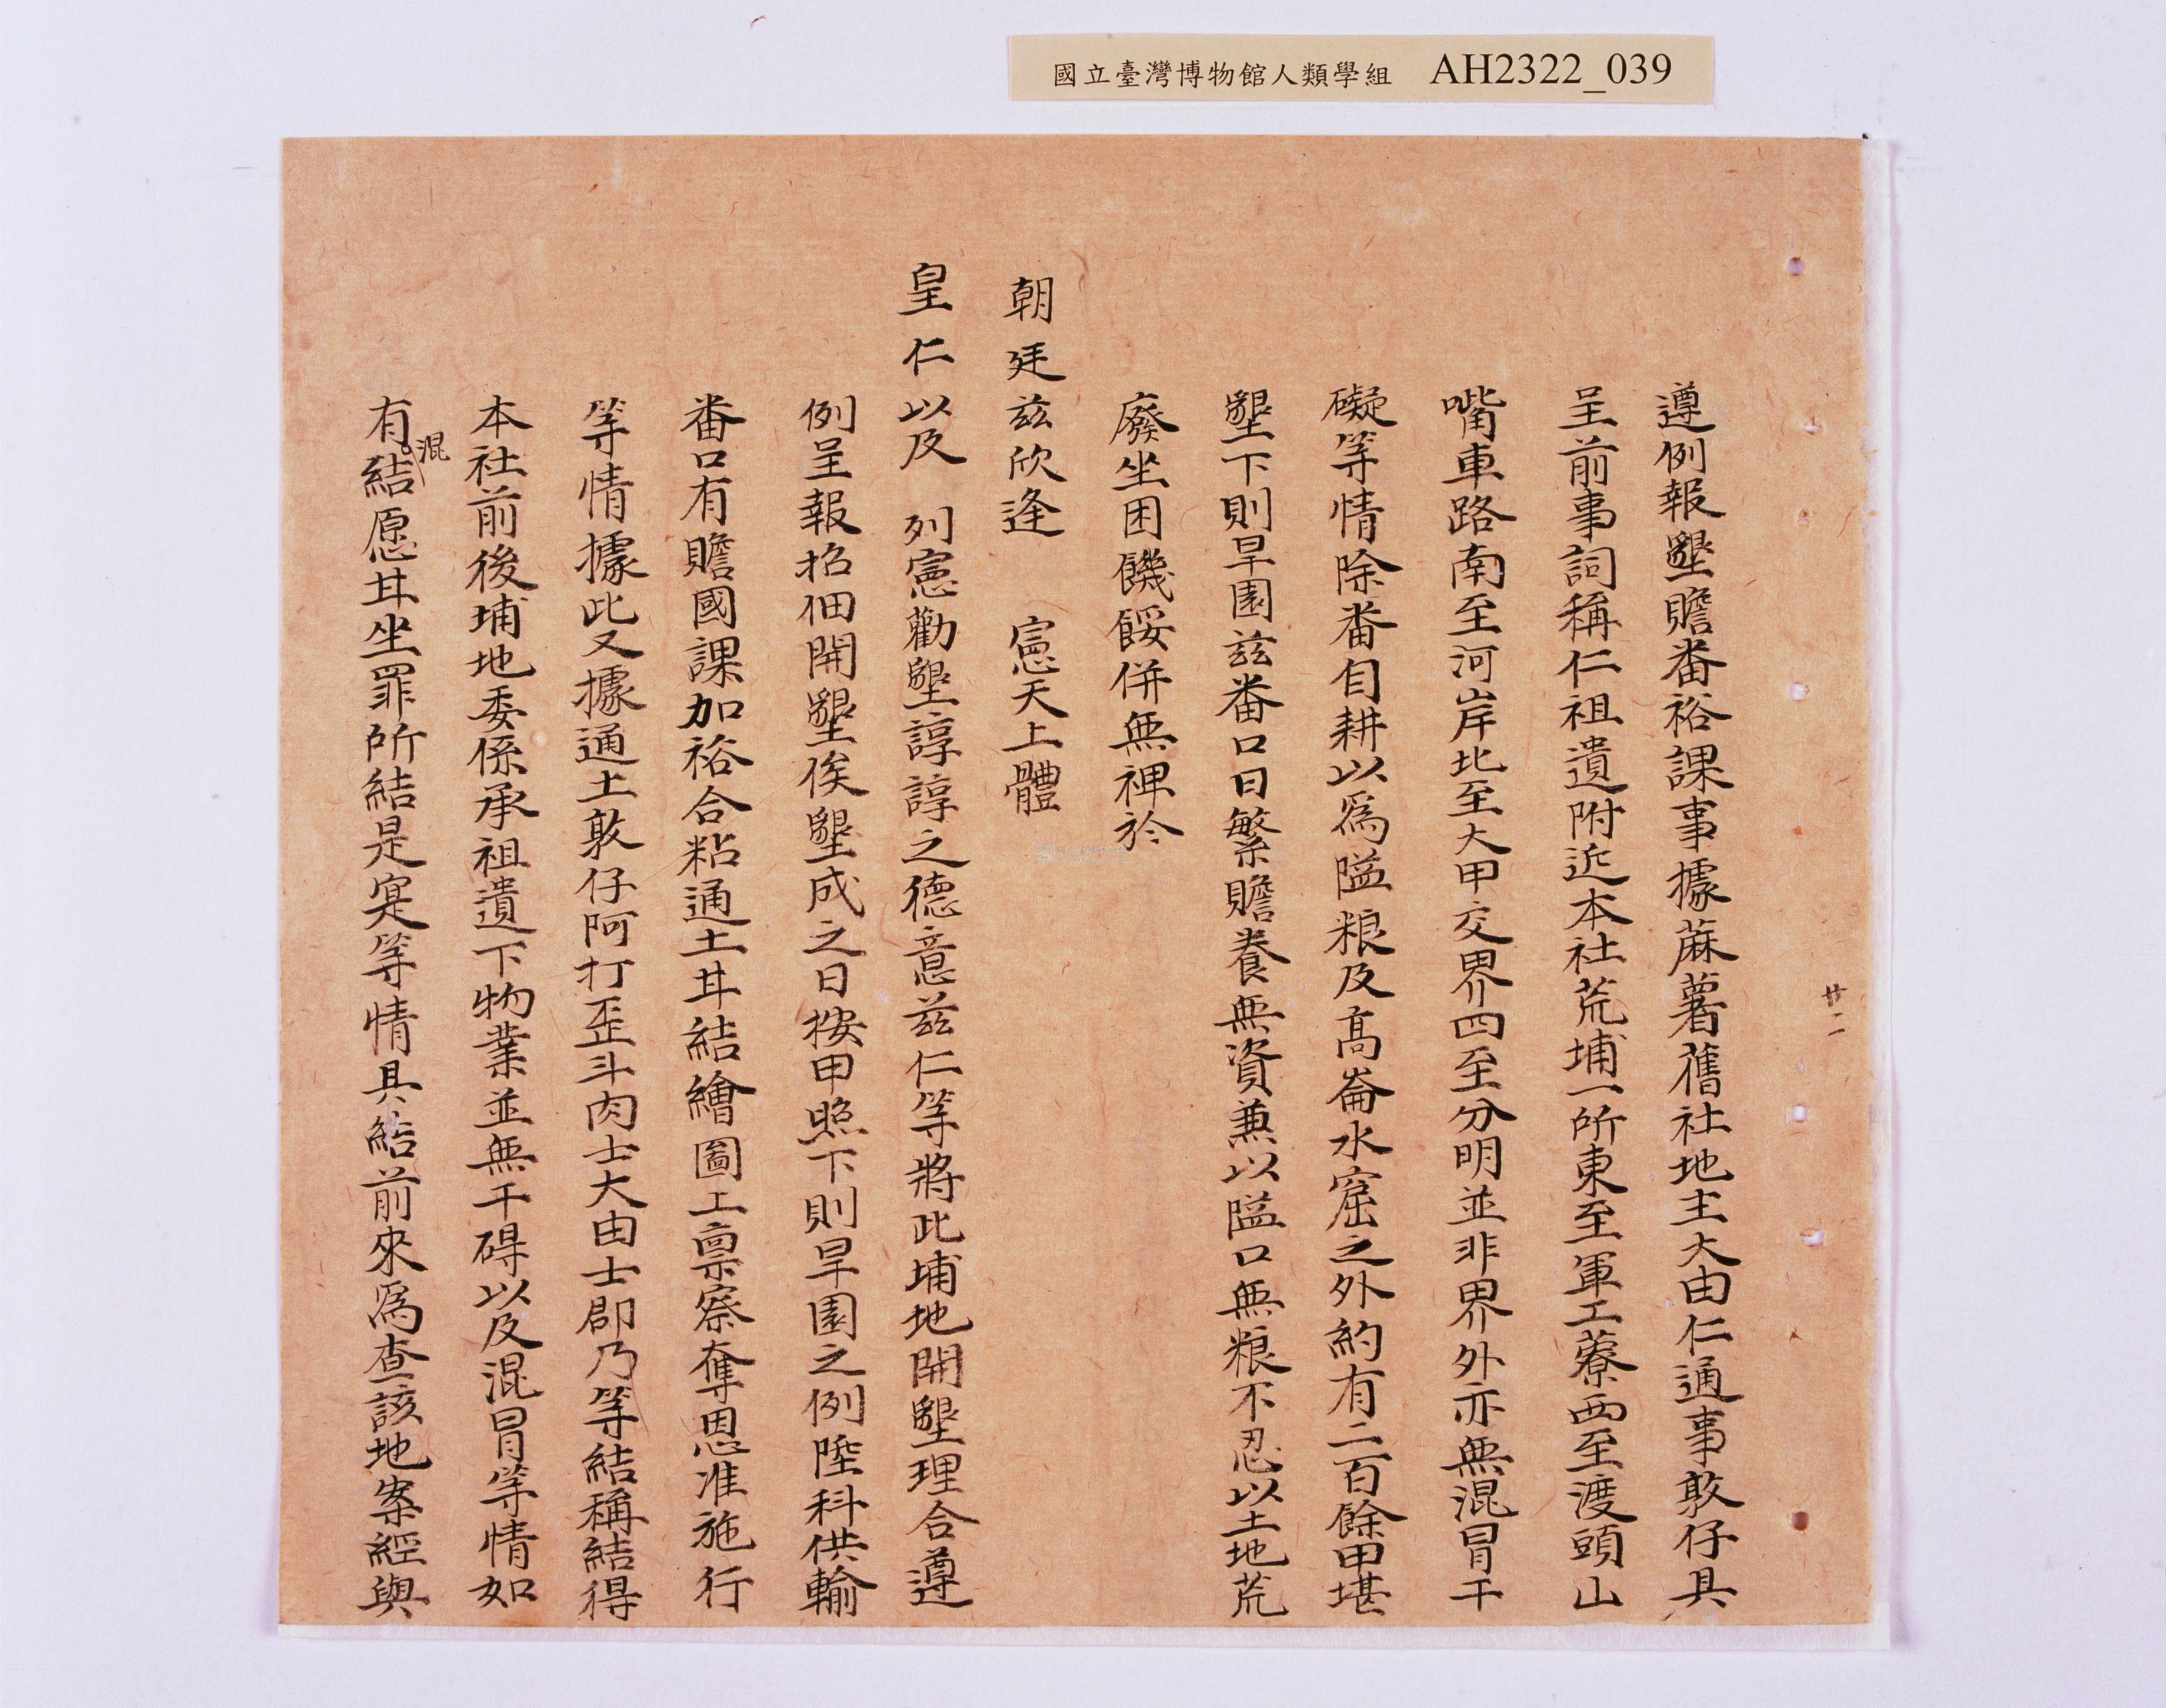 國立臺灣博物館人類學組 AH2322_039
廿二
遵例報墾贍番裕課事據蔴薯舊社地主大由仁通事敦仔具
呈前事詞稱仁祖遺附近本社荒埔一所東至軍工藔西至渡頭山
嘴車路南至河岸北至大甲交界四至分明並非界外亦無混冒干
礙等情除番自耕以爲隘粮及高崙水窟之外約有二百餘甲堪
墾下則旱園茲番口日繁贍養無資兼以隘口無粮不忍以土地荒
廢坐困饑餒併無裨於
朝廷茲欣逢 憲天上體
皇仁以及 列憲勸墾諄諄之德意茲仁等將此埔地開墾理合遵
例呈報招佃開墾俟墾成之日按甲照下則旱園之例陞科供輸
番口有贍國課加裕合粘通土甘結繪圖工稟察奪恩准施行
等情據此又據通土敦仔阿打歪斗肉士大由士郡乃等結稱結得
本社前後埔地委係承祖遺下物業並無干碍以及混冒等情如
有混結愿甘坐罪所結是寔等情具結前來爲查該地案經與